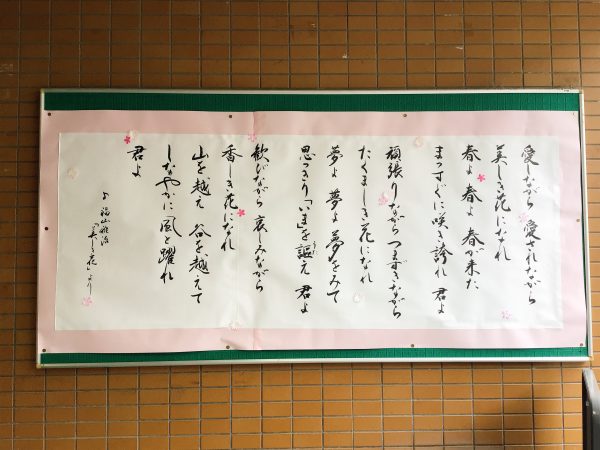 愛しながら 愛されながら
美しき花になれ
春よ 春よ 春が来た
まっすぐに咲き誇れ 君よ
頑張りながら つまずきながら
たくましき花になれ
夢よ 夢よ 夢をみて
思っきり「いま」を謳え 君よ
うた
歓びながら 哀しみながら
香しき花になれ
山を越え 谷を越えて
しなやかに 風と躍れ
君よ
♪ 福山雅治
「美しき花」より